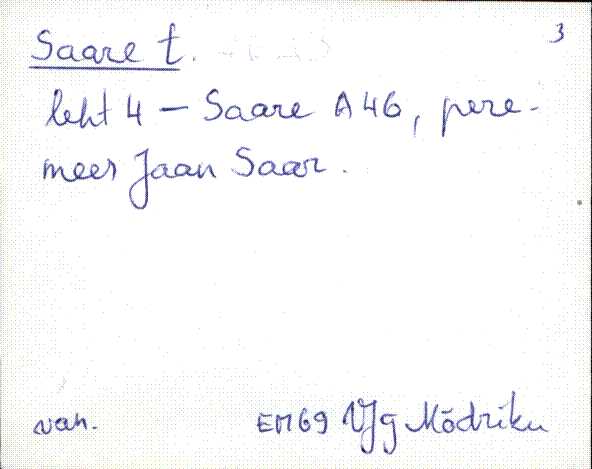 3
Saare t.
leht 4 – Saare A46, pere-
mees Jaan Saar.
van. EM69 VJg Mõdriku